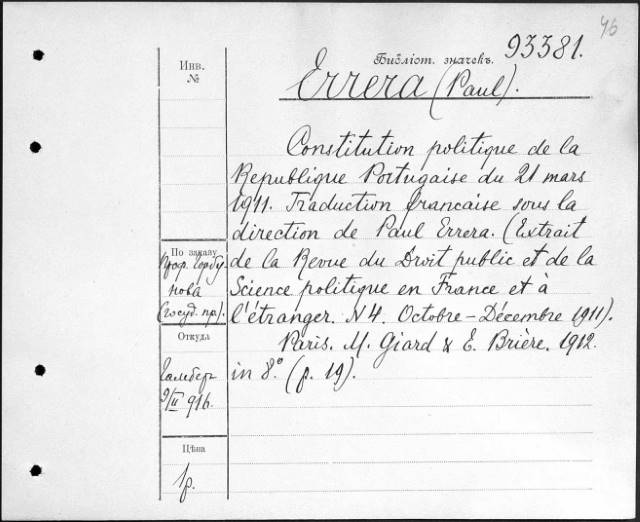 46
Библіот. значекъ. 93381.
Инв.
№
Errera (Paul).
Constitution politique de la
République Portugaise du 21 mars
1911. Traduction francaise sous la
direction de Paul Errera. (Extrait
По заказу
Проф. Горбу-
нова
(госуд. пр.).
de la Revue du Droit public et de la
Science politique en France et à
l'étranger. N 4. Octobre-Décembre 1911).
Откуда
Paris. M. Giard & E. Brière. 1912.
in 8.° (p. 19).
9/II 916.
Цѣна
1р.